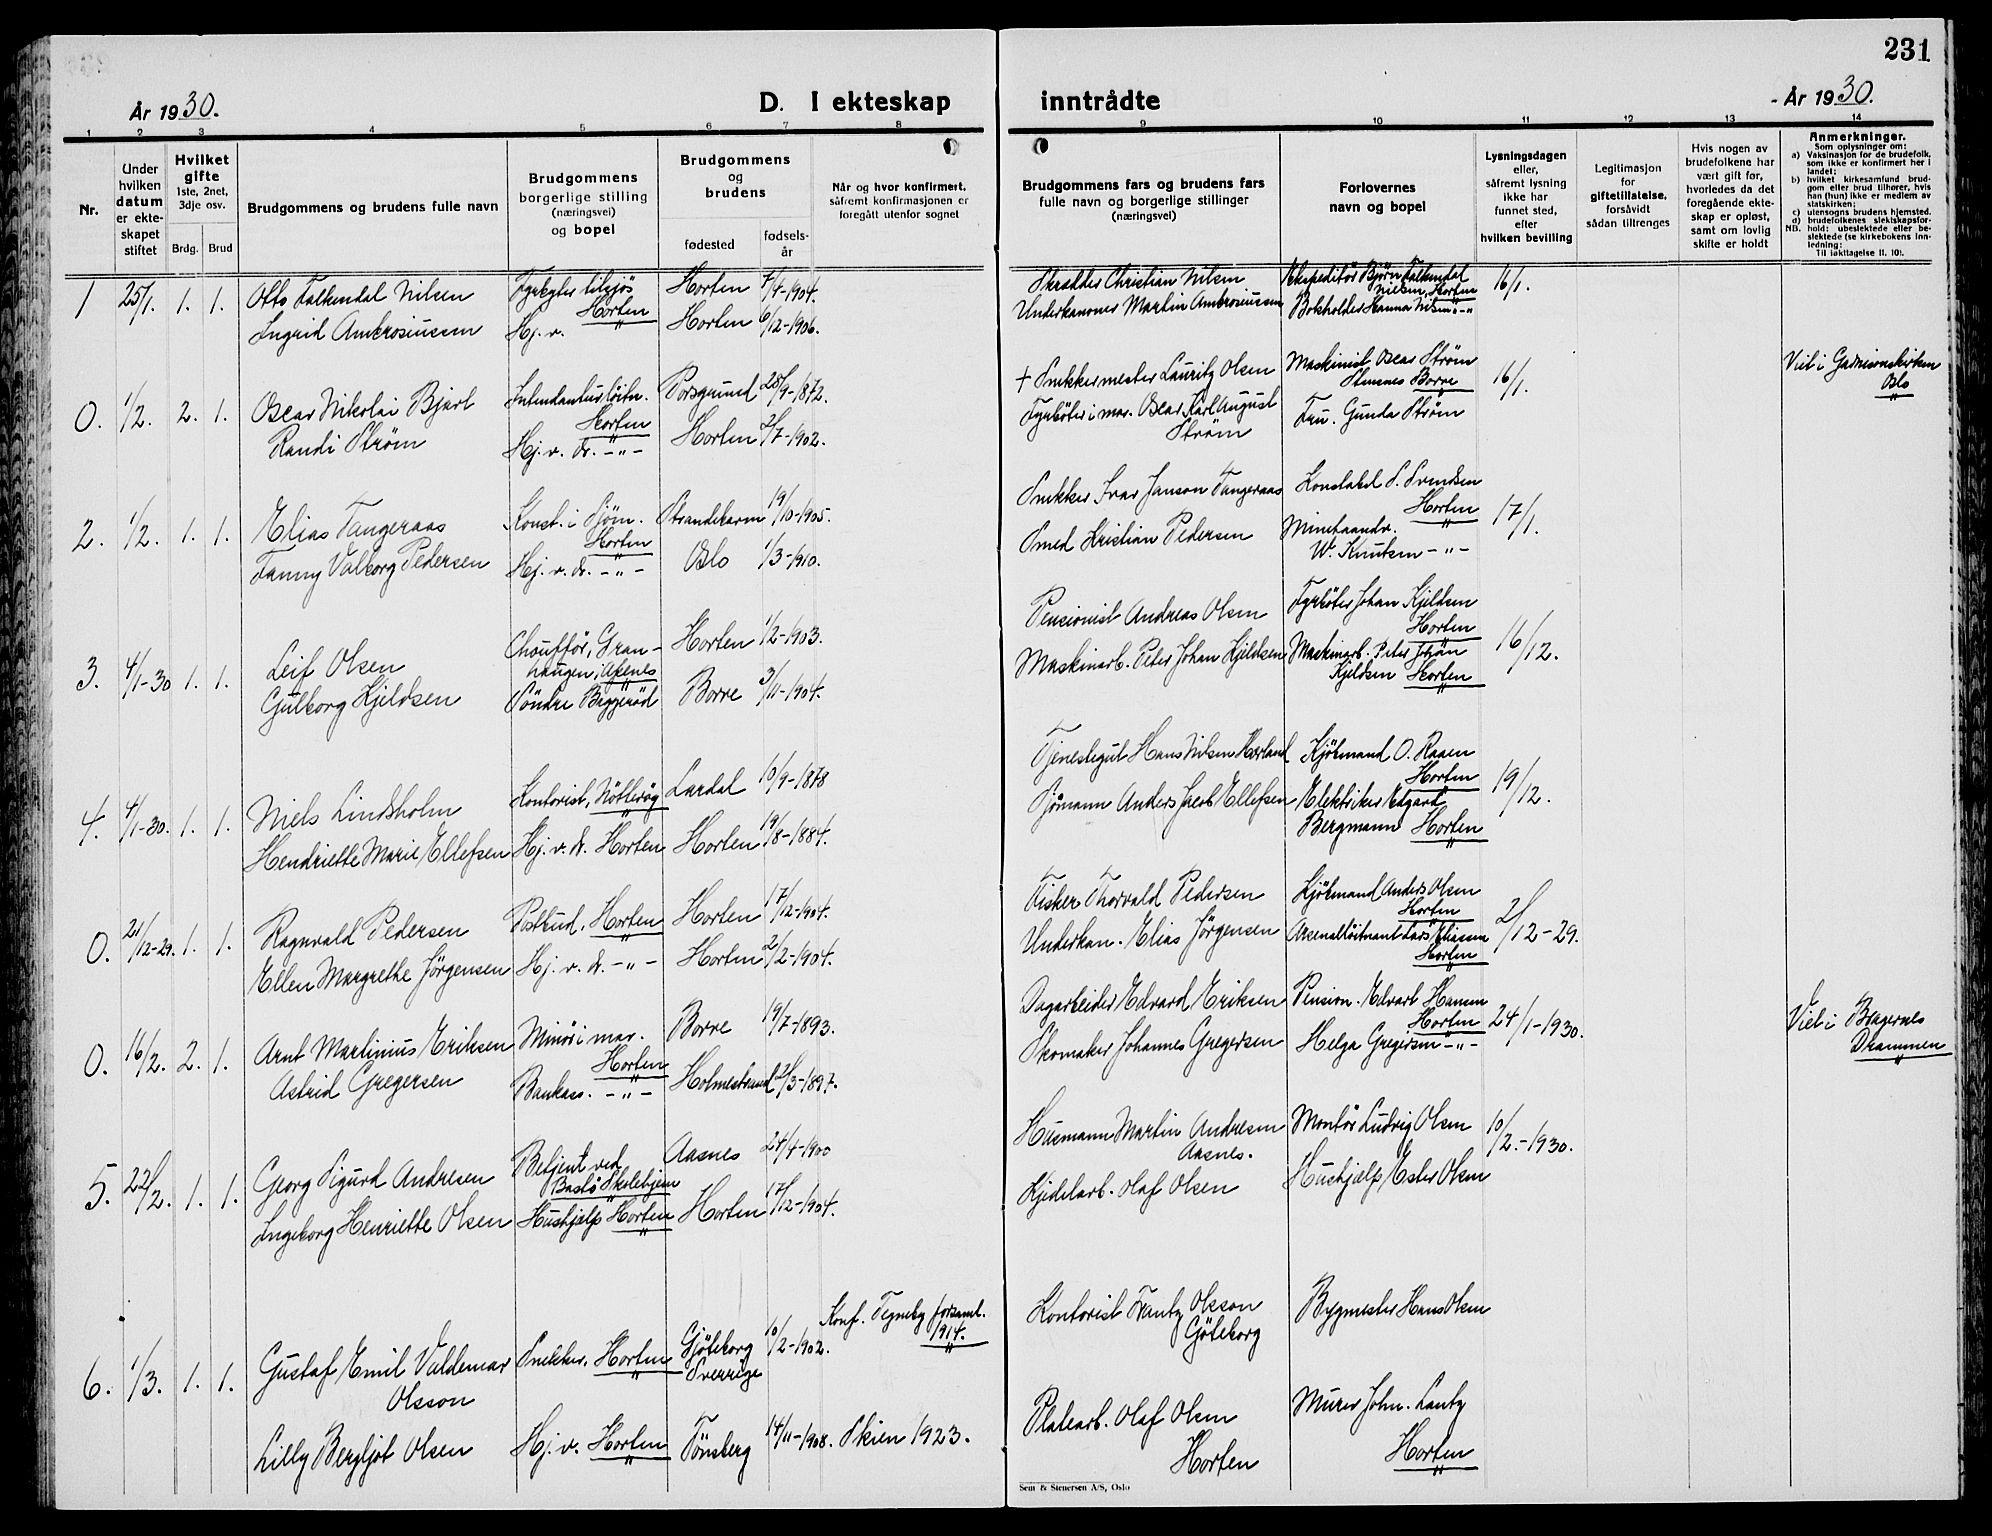 231
År 1930.
D. I ekteskap inntrådte
- År 1930.
1 2 3 4 5 6 7 8 9 10 11 12 13 14
Nr.
Under hvilken datum er ekteskapet stiftet
Hvilket gifte
1ste, 2net, 3dje osv.
Brdg. Brud
Brudgommens og brudens fulle navn
Brudgommens borgerlige stilling (næringsvei) og bopel
Brudgommens og brudens
fødested
fødselsår
Når og hvor konfirmert, såfremt konfirmasjonen er foregått utenfor sognet
Brudgommens fars og brudens fars fulle navn og borgerlige stillinger (næringsvei)
Forlovernes navn og bopel
Lysningsdagen eller, såfremt lysning ikke har funnet sted, efter hvilken bevilling
Legitimasjon for giftetillatelse, forsåvidt sådan tiltrenges
Hvis nogen av brudefolkene har vært gift før, hvorledes da det foregående ekteskap er opløst, samt om lovlig skifte er holdt
Anmerkninger.
Som oplysninger om:
a) Vaksinasjon for de brudefolk, som ikke er konfirmert her i landet;
b) hvilket kirkesamfund brudgom eller brud tilhører, hvis han (hun) ikke er medlem av statskirken;
c) utensogns brudens hjemsted.
d) brudefolkenes slektskapsforhold: ubeslektede eller beslektede (se kirkebokens innledning:
NB.
Til iakttagelse II. 10).
1 25/1. 1. 1. Otto Falkendal Nilsen Fyrbøter tilsjøs Horten Horten 7/4-1904. Skrædder Christian Nilsen Ekspeditør Bjørn Falkendal Nilsen, Horten 16/1.
Ingrid Ambrosiussen Hj. v. Horten 6/12-1906. Underkanoner Martin Ambrosiussen Bokholder Hanna Nilsen -"-
0. 1/2. 2. 1. Oscar Nikolai Bjarl Intendanturløitn. Horten Porsgrund 28/9-1872. † Snekkermester Lauritz Olsen Maskinist Oscar Strøm Borre 16/1. Viet i Garnisonskirken Oslo
Randi Strøm Hj. v. dr. -"- Horten 2/7-1902. Fyrbøter i mar. Oscar Karl August Strøm Fru. Gunda Strøm
2. 1/2. 1. 1. Elias Tangeraas Konst. i Sjøm. Horten Strandebarm 19/10-1905. Snekker Ivar Janson Tangeraas Konstabel S. Svendsen Horten 17/1.
Fanny Valborg Pedersen Hj. v. dr. -"- Oslo 1/3-1910. Smed Kristian Pedersen Minehaandv. W. Knutsen -"-
3. 4/1-30 1. 1. Leif Olsen Chouffør, Granhaugen, Horten 1/2-1903. Pensionist Andreas Olsen Fyrbøter Johan Kjeldsen Horten 16/12.
Gulborg Kjeldsen Søndre Baggerød Borre 3/11-1904. Maskinarb. Peter Johan Kjeldsen Maskinarb. Peter Johan Kjeldsen Horten
4. 4/1-30. 1. 1. Niels Lindsholm Kontorist, Nøtterøy Lardal 10/9-1878 Tjenestegut Hans Nilsen Hærland Kjøbmand O. Raaen Horten 19/12.
Hendriette Marie Ellefsen Hj. v. d. Horten Horten 19/8-1884. Sjømann Anders Jacob Ellefsen Elektriker Edgard Bergmann Horten
0. 21/12-29. 1. 1. Ragnvald Pedersen Postbud, Horten Horten 17/12-1904. Fisker Thorvald Pedersen Kjøbmand Anders Olsen Horten 2/12-29.
Ellen Margrethe Jörgensen Hj. v. d. -"- Horten 2/2-1904. Underkan. Elias Jörgensen Arsenalløitnant Lars Eliassen Horten
0. 16/2. 2. 1. Arnt Martinius Eriksen Minör i mar. Horten Borre 19/7-1893. Dagarbeider Edvard Eriksen Pension. Edvart Hansen Horten 24/1-1930. Viet i Bragernes Drammen
Astrid Gregersen Bankass. -"- Holmestrand 21/3-1897. Skomaker Johannes Gregersen Helga Gregersen -"-
5. 22/2. 1. 1. Georg Sigurd Andresen Betjent ved Bastø Skolehjem Aasnes 24/4-1900 Husmann Martin Andresen Aasnes. Montör Ludvig Olsen 10/2.-1930.
Ingeborg Henriette Olsen Hushjælp Horten Horten 17/12-1904. Kjedelarb. Olaf Olsen Hushjælp Ester Olsen
6. 1/3. 1. 1. Gustaf Emil Valdemar Olsson Snekker, Horten Gjöteborg Sverrige 10/2-1902. Konf. Tegneby forsaml. 1914. Kontorist Frantz Olsson Göteborg Bygmester Hans Olsen
Lilly Bergljot Olsen Hj. v. Horten Tönsberg 14/11-1908. Skien 1923. Platearb. Olaf Olsen Horten Murer John. Lantz Horten
Sem & Stenersen A/S, Oslo